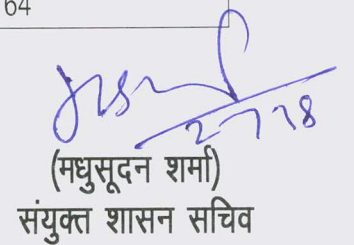 64
2-7-18
(मधुसूदन शर्मा)
संयुक्त शासन सचिव